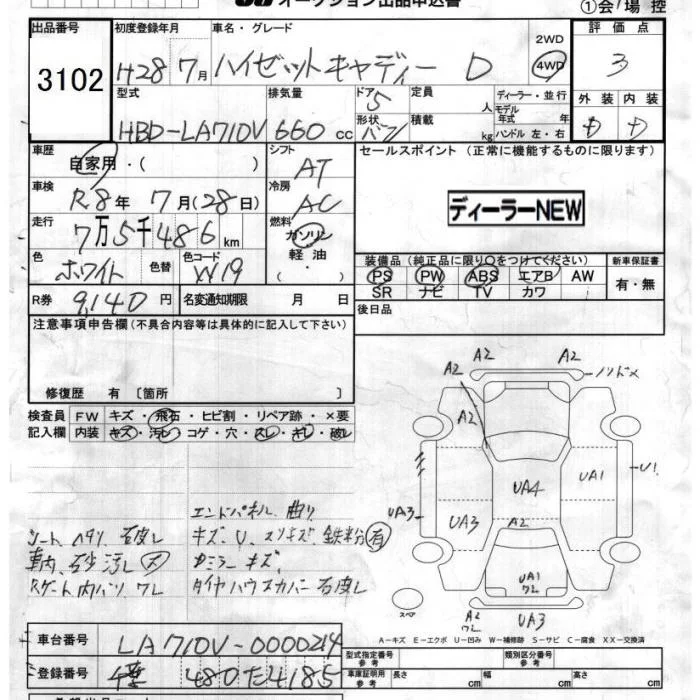 オークション出品申込書
①会場控
出品番号 初度登録年月 車名・グレード 評価点
3102 H28 7月 ハイゼットキャディー D 2WD 4WD 3
型式 排気量 ドア 5 定員 人 ディーラー・並行 外装 内装
HBD-LA710V 660 cc 形状 バン 積載 kg モデル年式 年 ハンドル 左・右
車歴 シフト セールスポイント (正常に機能するものに限ります)
自家用・( ) AT
車検 冷房
R8年 7月(28日) AC ディーラーNEW
走行 燃料
7万5千486km ガソリン
色 色替 色コード 軽油 装備品(純正品に限り○をつけてください) 新車保証書
ホワイト W19 ・( ) PS PW ABS エアB AW 有・無
R券 9,140円 名変通知期限 月 日 SR ナビ TV カワ
注意事項申告欄(不具合内容等は具体的に記入して下さい) 後日品
修復歴 有〔箇所 〕
検査員 FW キズ・飛石・ヒビ割・リペア跡・×要
記入欄 内装 キズ・汚レ・コゲ・穴・スレ・キレ・破レ
A2 A2
A2
UA4 UA1 U1
UA3 UA3 A2
UA1
ワレ
スペア A2 ワレ UA3
エンドパネル 曲り
シート、ヘタリ、石皮し キズ、U、スリキズ、鉄粉 有
車内、砂汚し 大 Dミラーキズ、
Rゲート内バリ ワレ タイヤハウスカバー 石皮し
A-キズ E-エクボ U-凹み W-補修跡 S-サビ C-腐食 XX-交換済
車台番号 LA710V-0000214 型式指定番号 参考 類別区分番号 参考
登録番号 480 た 4185 車庫証明用 参考 長さ cm 幅 cm 高さ cm